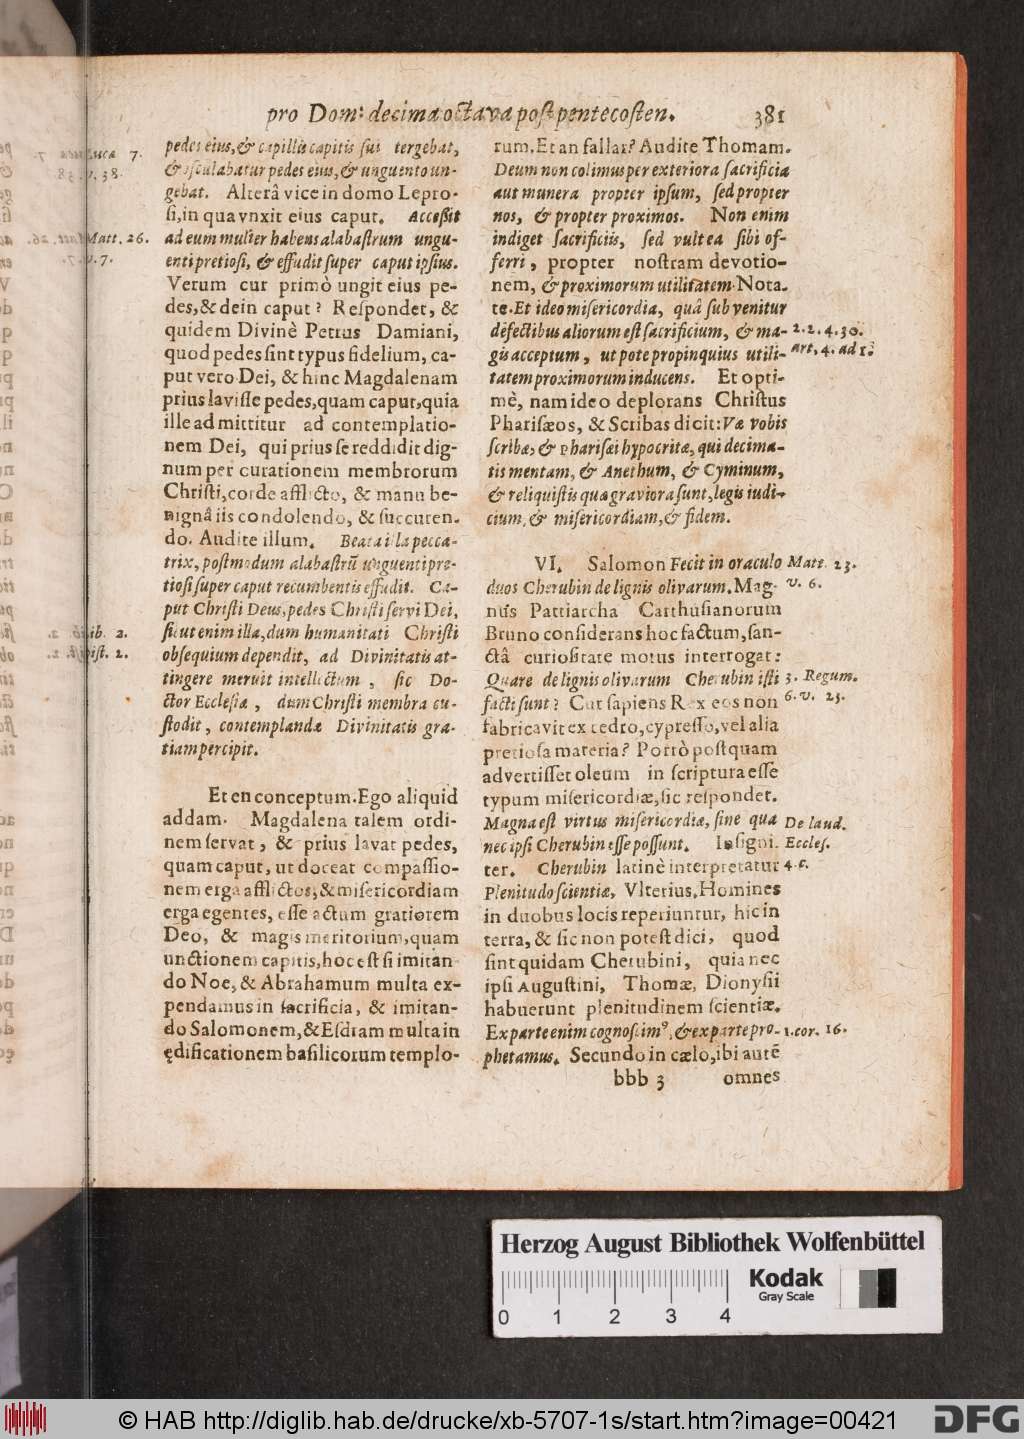 pro Dom: decima octava post pentecosten. 381
pedes eius, & capillis capitis sui tergebat,
& osculabatur pedes eius, & unguento un-
gebat. Alterâ vice in domo Lepro-
si, in qua vnxit eius caput. Accessit
ad eum mulier habens alabastrum ungu-
enti pretiosi, & effudit super caput ipsius.
Verum cur primò ungit eius pe-
des, & dein caput? Respondet, &
quidem Divinè Petrus Damiani,
quod pedes sint typus fidelium, ca-
put vero Dei, & hinc Magdalenam
prius lavisse pedes, quam caput, quia
ille admittitur ad contemplatio-
nem Dei, qui prius se reddidit dig-
num per curationem membrorum
Christi, corde afflicto, & manu be-
nignâ iis condolendo, & succuren-
do. Audite illum. Beata illa pecca-
trix, postmodum alabastrũ unguenti pre-
tiosi super caput recumbentis effudit. Ca-
put Christi Deus, pedes Christi servi Dei,
sicut enim illa, dum humanitati Christi
obsequium dependit, ad Divinitatis at-
tingere meruit intellectum, sic Do-
ctor Ecclesiæ, dum Christi membra cu-
stodit, contemplandæ Divinitatis gra-
tiam percipit.
Et en conceptum. Ego aliquid
addam. Magdalena talem ordi-
nem servat, & prius lavat pedes,
quam caput, ut doceat compassio-
nem erga afflictos, & misericordiam
erga egentes, esse actum gratiorem
Deo, & magis meritorium, quam
unctionem capitis, hoc est si imitan-
do Noe, & Abrahamum multa ex-
pendamus in sacrificia, & imitan-
do Salomonem, & Esdram multa in
ędificationem basilicorum templo-
Luca 7.
v. 38.
Matt. 26.
v. 7.
lib. 2.
Epist. 2.
rum. Et an fallar? Audite Thomam.
Deum non colimus per exteriora sacrificia
aut munera propter ipsum, sed propter
nos, & propter proximos. Non enim
indiget sacrificiis, sed vult ea sibi of-
ferri, propter nostram devotio-
nem, & proximorum utilitatem. Nota-
te. Et ideo misericordia, quâ subvenitur
defectibus aliorum est sacrificium, & ma-
gis acceptum, utpote propinquius utili-
tatem proximorum inducens. Et opti-
mè, nam ideo deplorans Christus
Pharisæos, & Scribas dicit: Væ vobis
scribæ, & pharisæi hypocritæ, qui decima-
tis mentam, & Anethum, & Cyminum,
& reliquistis quæ graviora sunt, legis iudi-
cium, & misericordiam, & fidem.
VI. Salomon Fecit in oraculo
duos Cherubin de lignis olivarum. Mag-
nus Patriarcha Carthusianorum
Bruno considerans hoc factum, san-
ctâ curiositate motus interrogat:
Quare de lignis olivarum Cherubin isti
facti sunt? Cur sapiens Rex eos non
fabricavit ex cedro, cypresso, vel alia
pretiosa materia? Porrò postquam
advertisset oleum in scriptura esse
typum misericordiæ, sic respondet.
Magna est virtus misericordiæ, sine qua
nec ipsi Cherubin esse possunt. Insigni-
ter. Cherubin latinè interpretatur
Plenitudo scientiæ, Vlterius, Homines
in duobus locis reperiuntur, hic in
terra, & sic non potest dici, quod
sint quidam Cherubini, quia nec
ipsi Augustini, Thomæ, Dionysii
habuerunt plenitudinem scientiæ.
Ex parte enim cognoscimꝰ, & ex parte pro-
phetamus. Secundo in cælo, ibi autẽ
bbb 3 omnes
2. 2. 4. 30.
Art. 4. ad 1.
Matt. 23.
v. 6.
3. Regum.
6. v. 23.
De laud.
Eccles.
4. c.
1. cor. 16.
Herzog August Bibliothek Wolfenbüttel
Kodak
Gray Scale
0 1 2 3 4
© HAB http://diglib.hab.de/drucke/xb-5707-1s/start.htm?image=00421
DFG